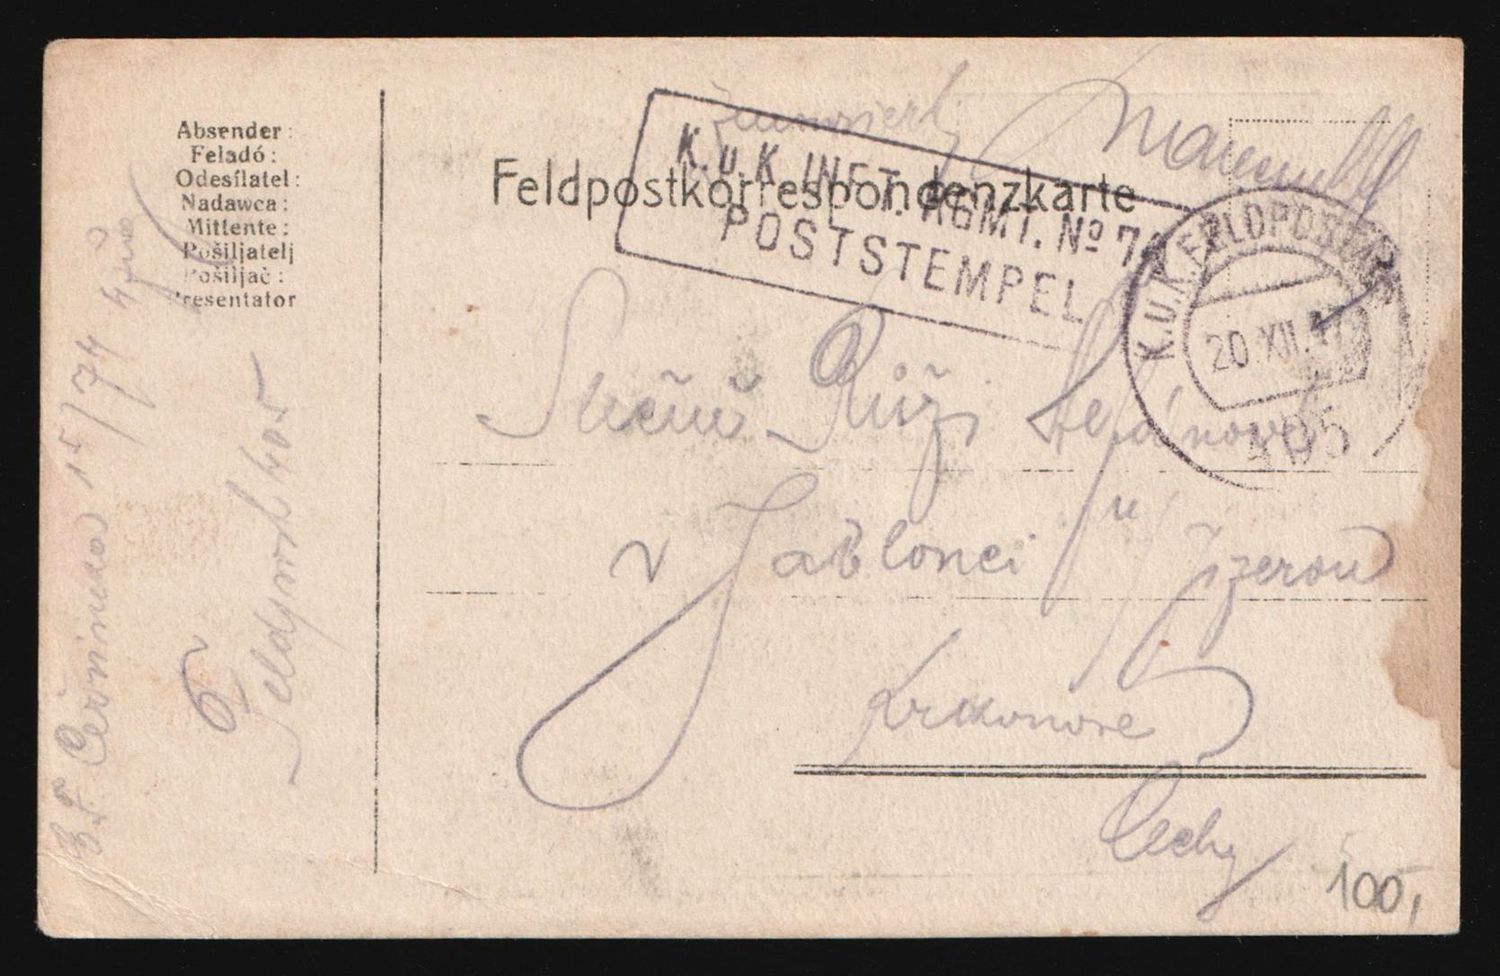 Absender:
Feladó:
Odesílatel:
Nadawca:
Mittente:
Pošiljatelj
Pošiljač:
Presentator
Feldpostkorrespondenzkarte
K.u.K. INFT. RGMT. No 74
POSTSTEMPEL
K.u.K. FELDPOSTAMT
20.XII.17
405
Slečně Růži
v Jablonci n/ Jizerou
Krkonoše
Čechy
100,
15/74
Feldpost 405